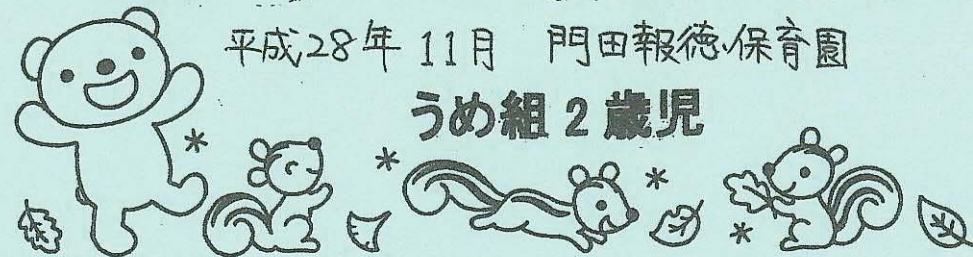 平成28年 11月　門田報徳保育園
うめ組 2 歳児